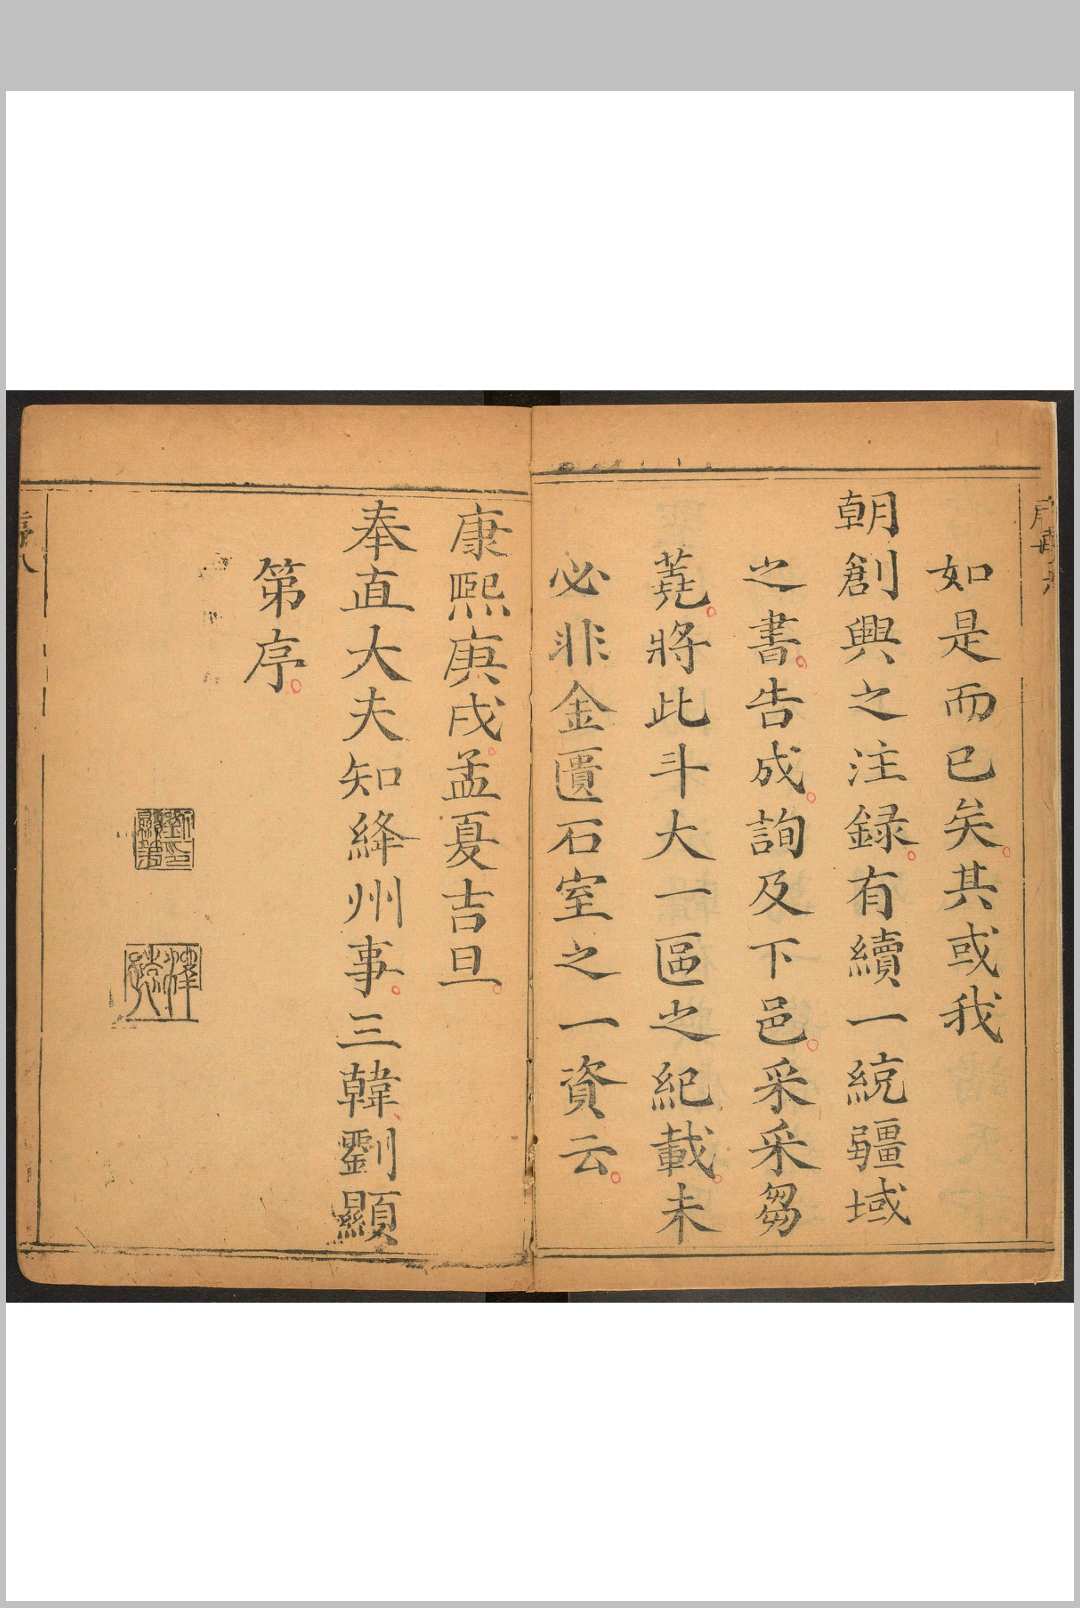 如是而已矣其或我
朝創興之注錄有續一統疆域
之書告成詢及下邑采采芻
蕘將此斗大一區之紀載未
必非金匱石室之一資云
康熙庚戌孟夏吉旦
奉直大夫知絳州事三韓劉顯
第序
劉顯第印
序八